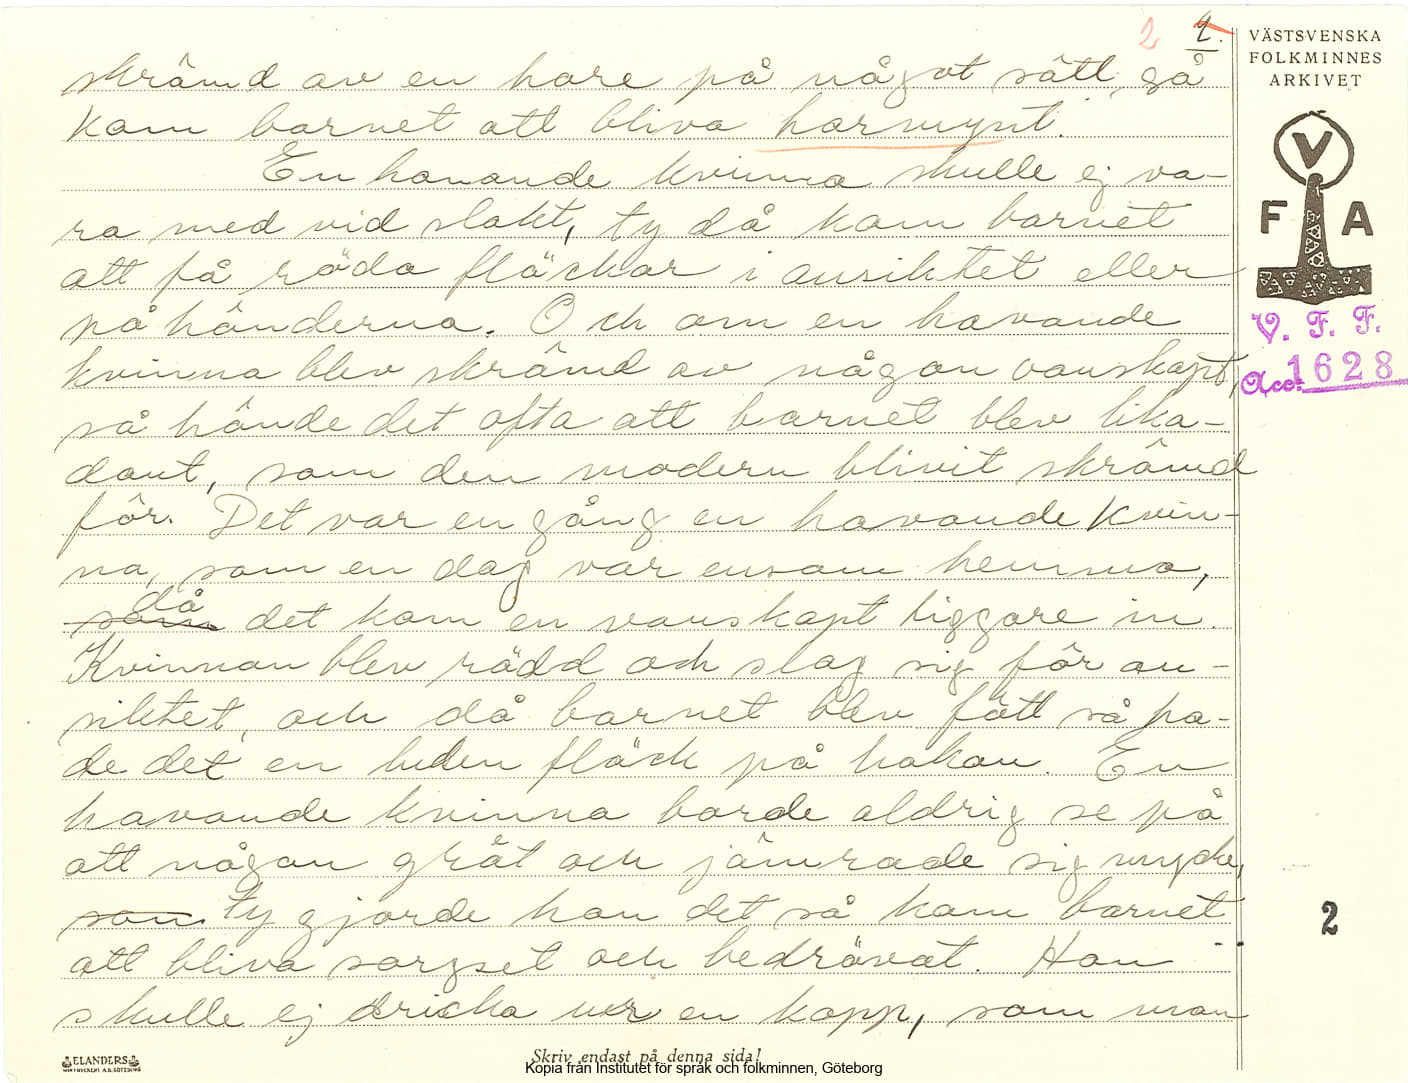 2 2.
skrämd av en hare på något sätt, så
kom barnet att bliva harmynt.
En havande kvinna skulle ej va-
ra med vid slakt, ty då kom barnet
att få röda fläckar i ansiktet eller
på händerna. Och om en havande
kvinna blev skrämd av någon vanskapt,
så hände det ofta att barnet blev lika-
dant, som den modern blivit skrämd
för. Det var en gång en havande kvin-
na, som en dag var ensam hemma,
då
som det kom en vanskapt tiggare in.
Kvinnan blev rädd och slog sig för an-
siktet, och då barnet blev fött så ha-
de det en liten fläck på hakan. En
havande kvinna borde aldrig se på
att någon grät och jämrade sig mycke,
som ty gjorde hon det så kom barnet
att bliva sorgset och bedrövat. Hon
skulle ej dricka ur en kopp, som man
VÄSTSVENSKA
FOLKMINNES
ARKIVET
V
F A
V. F. F.
Acc. 1628
2
ELANDERS
Skriv endast på denna sida!
Kopia från Institutet för språk och folkminnen, Göteborg